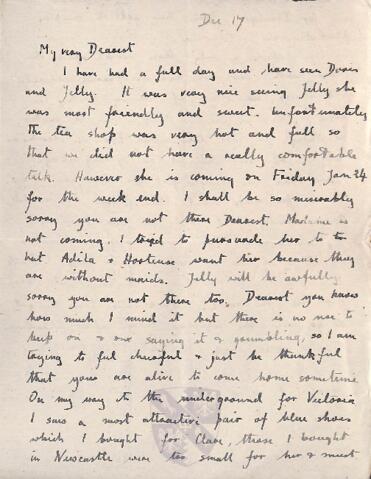 Dec 17
My very Dearest
I have had a full day and have seen Doris
and Jelly. It was very nice seeing Jelly she
was most friendly and sweet. Unfortunately
the tea shop was very hot and full so
that we did not have a really comfortable
talk. However she is coming on Friday Jan 24
for the week end. I shall be so miserably
sorry you are not there Dearest. Madame is
not coming. I tried to persuade her to
but Adila & Hortense want her because they
are without maids. Jelly will be awfully
sorry you are not there too. Dearest you know
how much I mind it but there is no use to
keep on & on saying it & grumbling, so I am
trying to feel cheerful & just be thankful
that you are alive to come home sometime
On my way to the underground for Victoria
I saw a most attractive pair of blue shoes
which I bought for Clare, those I bought
in Newcastle were too small for her & must